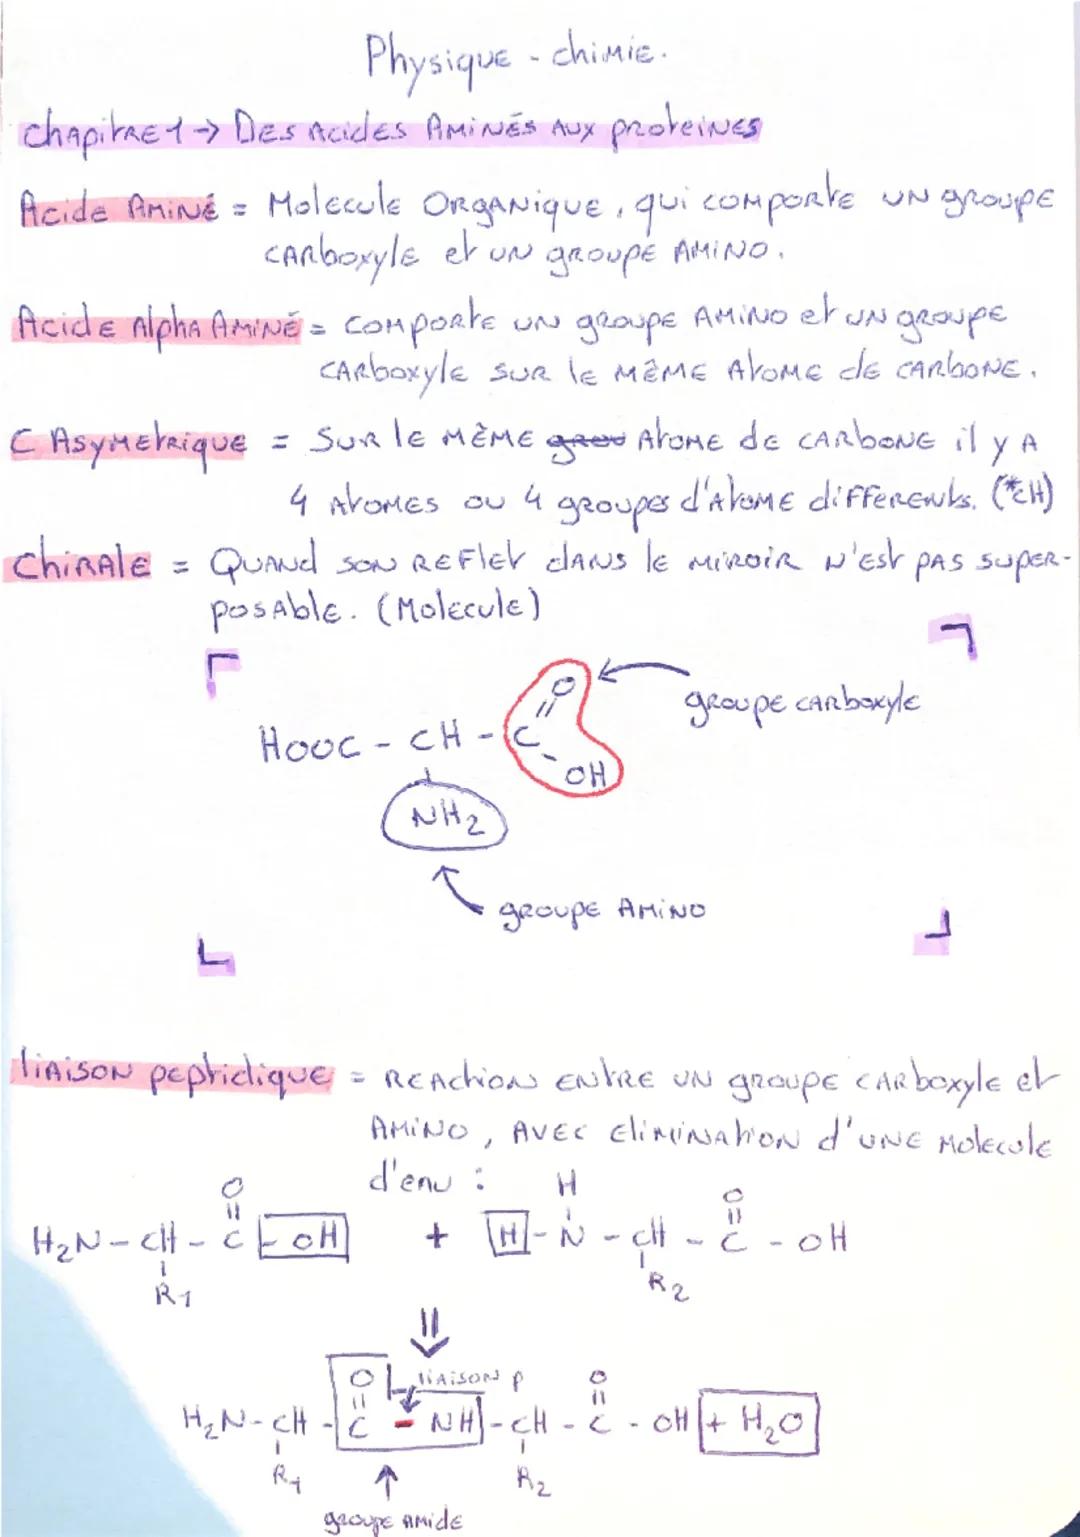 Physique - chimie.
chapitre 1 → Des Acides Aminés aux proteines
Acide Aminé = Molecule Organique, qui comporte un groupe
carboxyle et un groupe Amino.
Acide Alpha Aminé = comporte un groupe Amino et un groupe
carboxyle sur le même Atome de carbone.
C Asymetrique = Sur le même grou Atome de carbone il y a
4 Atomes ou 4 groupes d'Atome differents. (*CH)
chirale = Quand son reflet dans le miroir n'est pas super-
posable. (Molecule)
O
groupe carboxyle
HOOC - CH - C
OH
NH2
groupe Amino
liaison peptidique = reaction entre un groupe carboxyle et
Amino, avec elimination d'une Molecule
d'eau :
O H O
H2N - CH - C - OH + H - N - CH - C - OH
R1 R2
⇓
O liaison p O
H2N - CH - C - NH - CH - C - OH + H2O
R1 R2
groupe amide